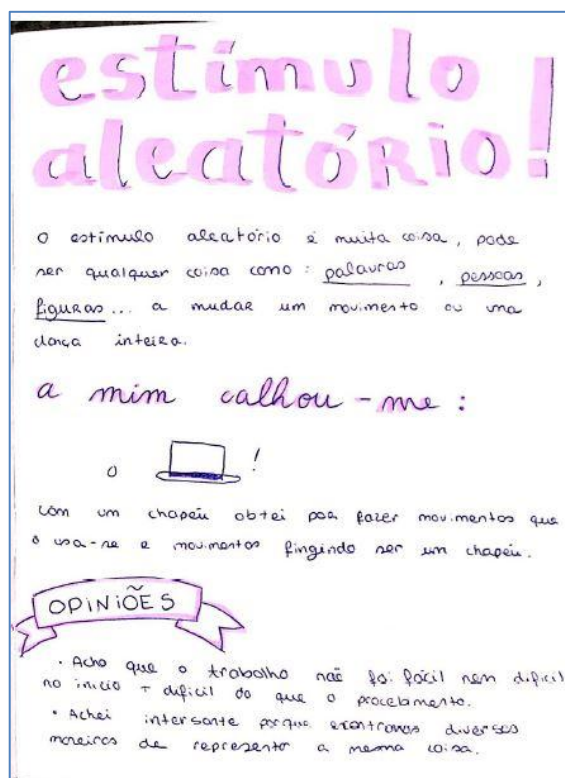 estímulo
aleatório!
o estímulo aleatório é muita coisa, pode
ser qualquer coisa como: palavras, pessoas,
figuras... a mudar um movimento ou uma
dança inteira.
a mim calhou-me:
o !
Com um chapéu obtei por fazer movimentos que
o usa-se e movimentos fingindo ser um chapéu.
OPINIÕES
• Acho que o trabalho não foi fácil nem dificil
no inicio + dificil do que o
• Achei intersante porque diversas
maneiras de representar a mesma coisa.